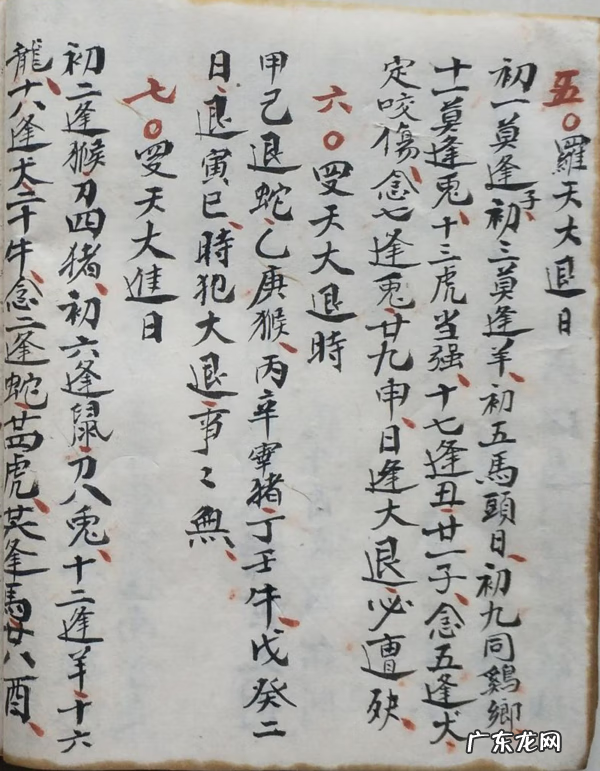 五〇羅天大退日
初一莫逢子、初三莫逢羊、初五馬頭日、初九同鷄鄉、
十一莫逢兎、十三虎当强、十七逢丑、廿一子、念五逢犬、
定咬傷、念七逢兎、廿九申、日逢大退必遭殃、
六〇罗天大退時
甲己退蛇、乙庚猴、丙辛寔猪、丁壬牛、戊癸二
日、退寅巳、時犯大退事〻無、
七〇罗天大進日
初二逢猴、刀四猪、初六逢鼠、刀八兎、十二逢羊、十六
龍、十八逢犬、二十牛、念二逢蛇、廿四虎、廿六逢馬、廿八酉、
广东龙网